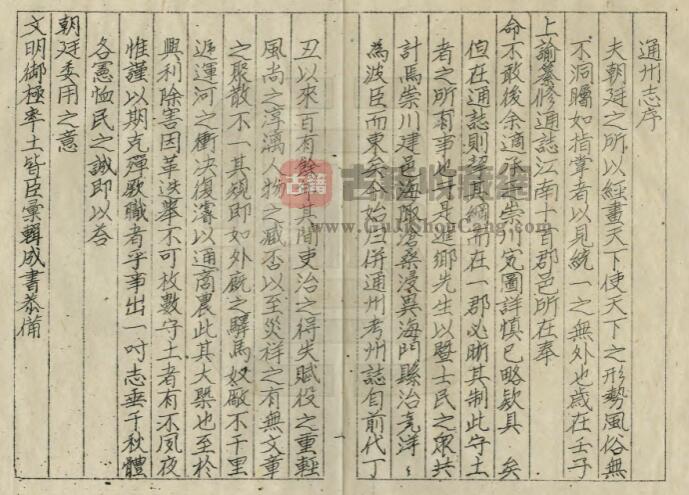 通州志序
夫朝廷之所以經畫天下使天下之形勢風俗無
不洞矚如指掌者以見統一之無外也歲在壬子
上諭纂修通誌江南十首郡邑所在奉
命不敢後余適承乏崇川寃圖詳慎已略欵具 矣
但在通誌則挈其綱而在一郡必晰其制此守土
者之所有事也于是進鄉先生以暨士民之眾共
計焉崇川建邑海陬滄桑浸異海門縣治竟洋〻
為波臣而東矣今始歸併通州考州誌自前代丁
丑以來百有餘年其間吏治之得失賦役之重輕
風尚之淳漓人物之臧否以至災祥之有無文章
之聚散不一其規即如外廐之驛馬奴廠不千里
遞運河之衝決復濬以通商農此其大槩也至於
興利除害因革迭舉不可枚數守土者有不夙夜
惟謹以期克殫厥職者乎事出一时志垂千秋體
各憲恤民之誠即以荅
朝廷委用之意
文明御極率土皆臣彙輯成書恭備
古籍
古籍收藏網
www.GuJiShouCang.com